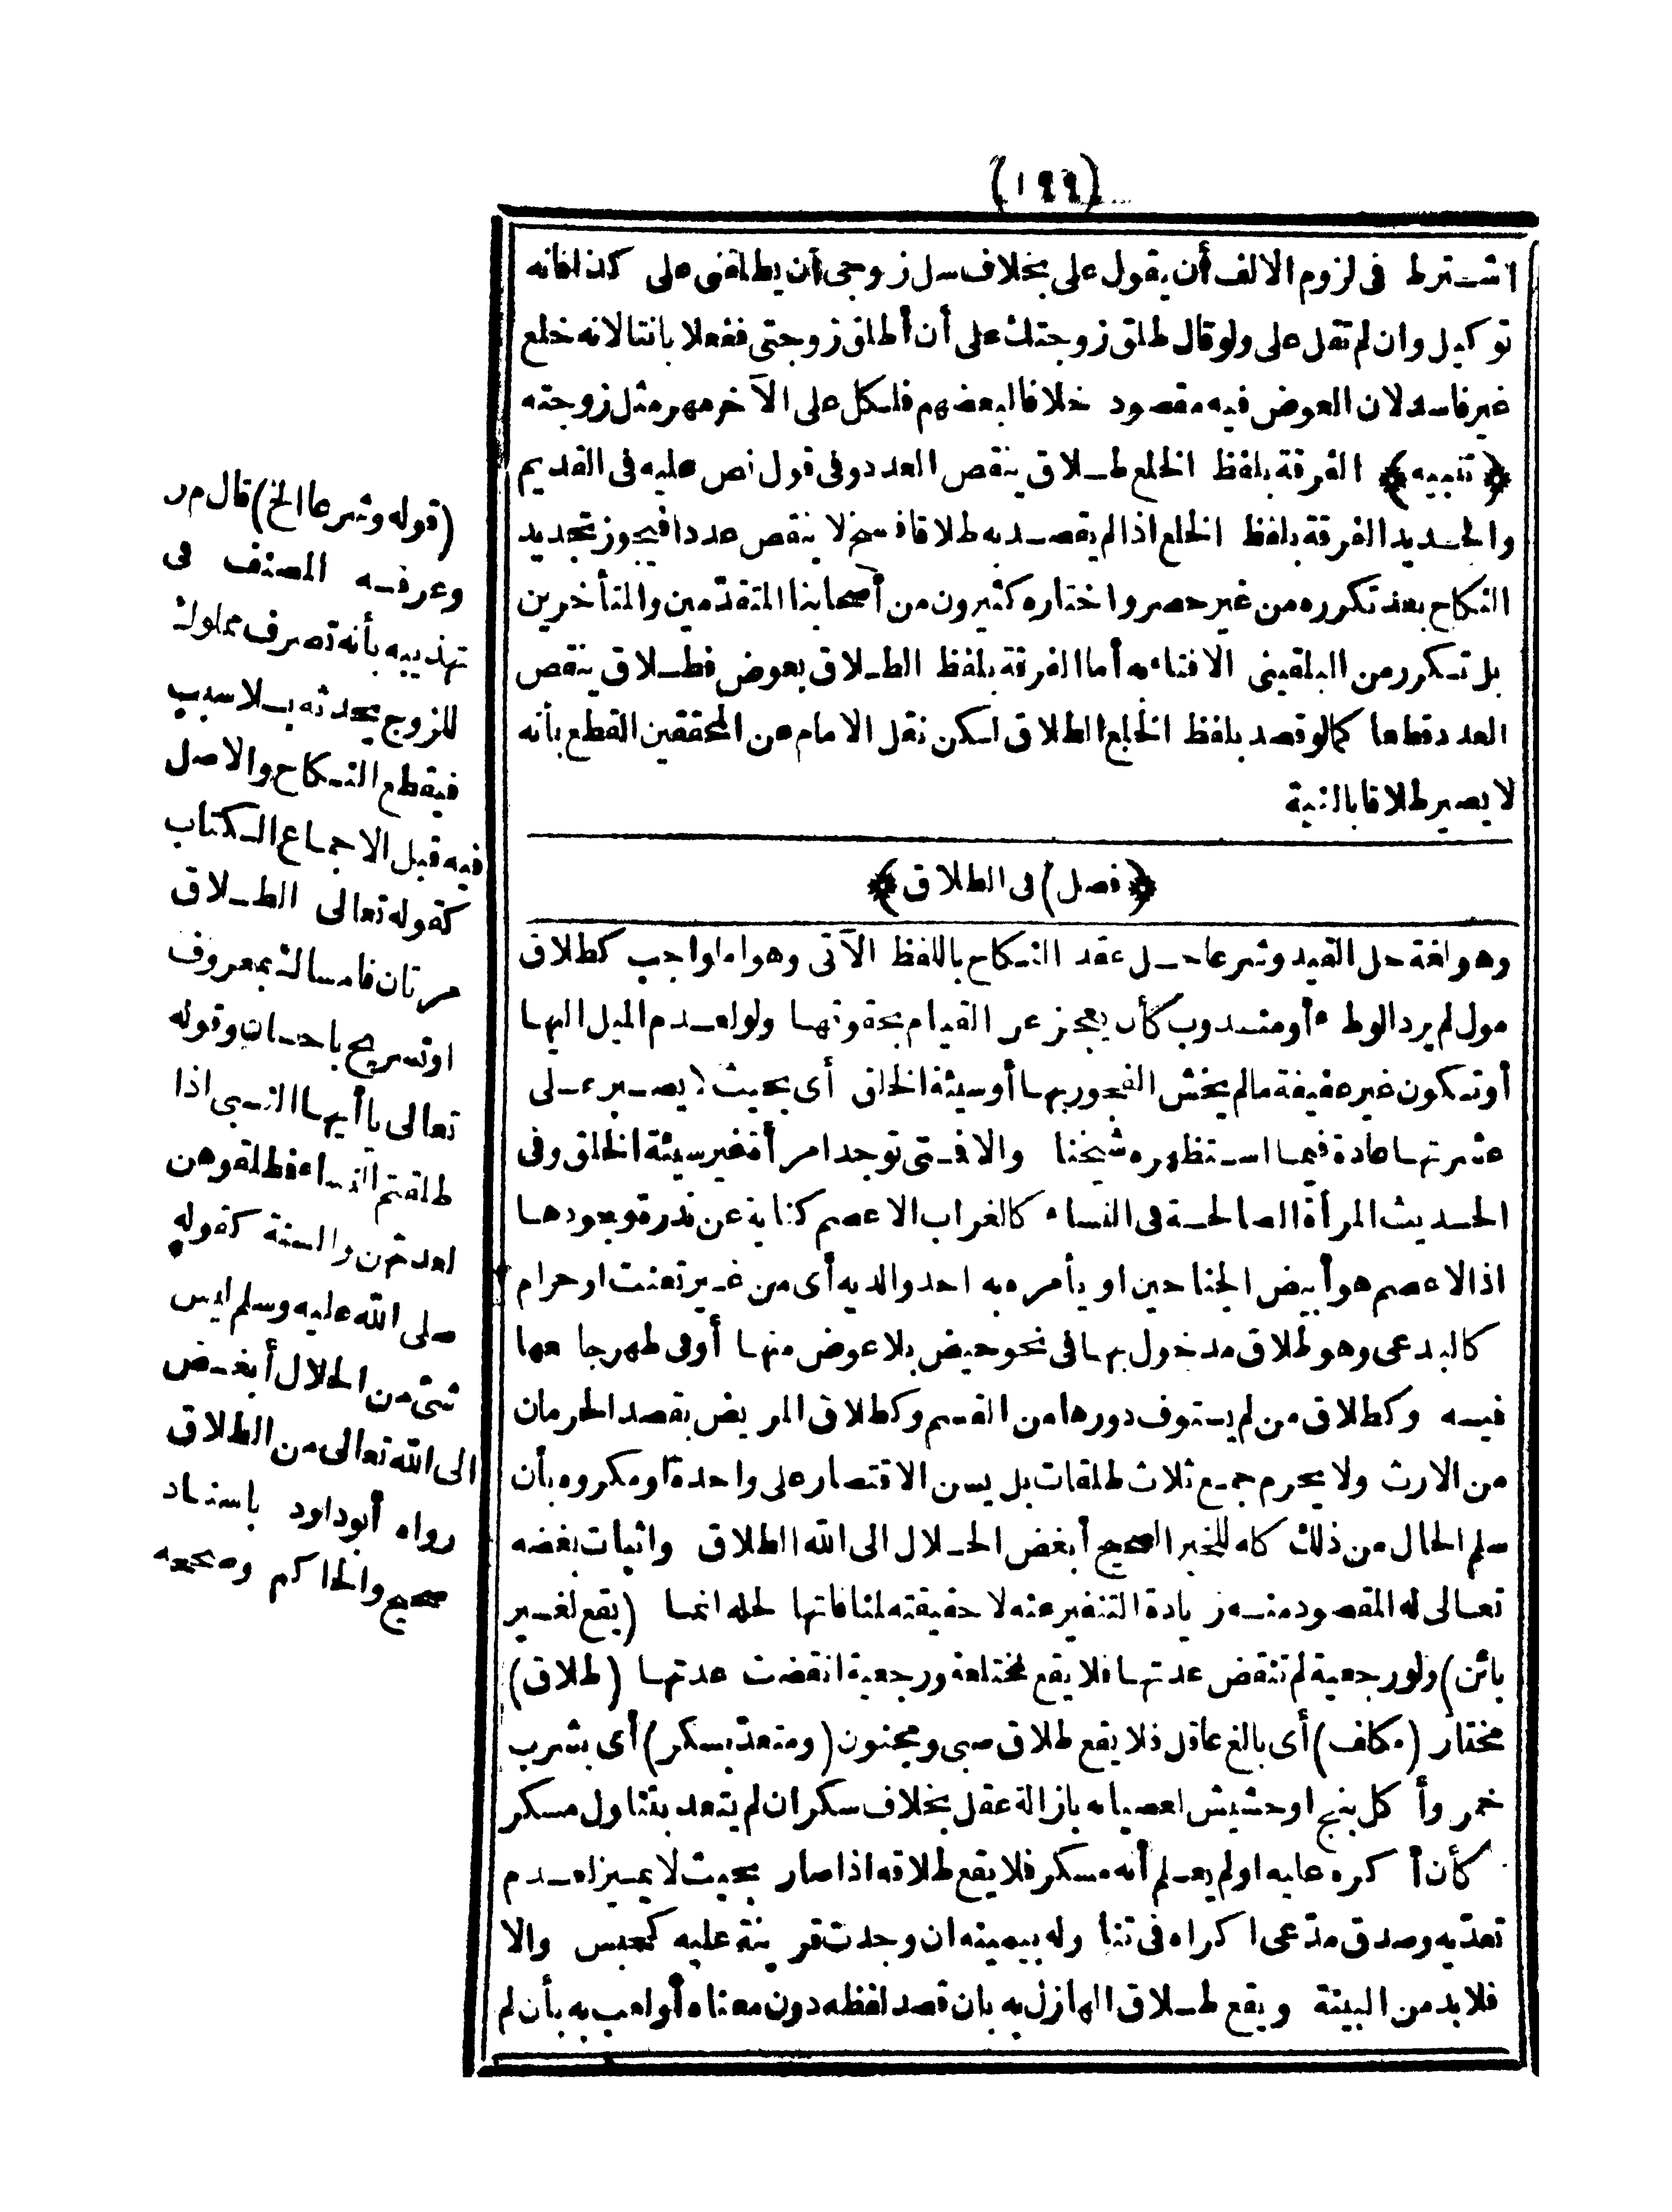 (١٩٩)
اشترط فى لزوم الالف أن يقول على بخلاف سل زوجى أن يطلقنى على كذا فانه
توكيل وان لم تقل على ولو قال طلق زوجتك على أن أطلق زوجتى ففعلا بانتا لانه خلع
غير فاسد لان العوض فيه مقصود خلافا لبعضهم فلكل على الآخر مهر مثل زوجته
﴿تنبيه﴾ الفرقة بلفظ الخلع طلاق ينقص العدد وفى قول نص عليه فى القديم
والجديد الفرقة بلفظ الخلع اذا لم يقصد به طلاقا فسخ لا ينقص عددا فيجوز تجديد
النكاح بعد تكرره من غير حصر واختاره كثيرون من أصحابنا المتقدّمين والمتأخرين
بل تكرر من البلقينى الافتاء به أما الفرقة بلفظ الطلاق بعوض فطلاق ينقص
العدد قطعا كما لو قصد بلفظ الخلع الطلاق لكن نقل الامام عن المحققين القطع بأنه
لا يصير طلاقا بالنية
﴿فصل) فى الطلاق﴾
وهو لغة حل القيد وشرعا حل عقد النكاح باللفظ الآتى وهو اما واجب كطلاق
مول لم يرد الوطء أو مندوب كأن يعجز عن القيام بحقوقها ولو لعدم الميل اليها
أو تكون غير عفيفة ما لم يخش الفجور بها أو سيئة الخلق أى بحيث لا يصبر على
عشرتها عادة فيما استظهره شيخنا والا فمتى توجد امرأة غير سيئة الخلق وفى
الحديث المرأة الصالحة فى النساء كالغراب الاعصم كناية عن ندرة وجودها
اذ الاعصم هو أبيض الجناحين او يأمره به احد والديه أى من غير تعنت او حرام
كالبدعى وهو طلاق مدخول بها فى نحو حيض بلا عوض منها أو فى طهر جامعها
فيه وكطلاق من لم يستوف دورها من القسم وكطلاق المريض بقصد الحرمان
من الارث ولا يحرم جمع ثلاث طلقات بل يسن الاقتصار على واحدة او مكروه بأن
سلم الحال من ذلك كله للخبر الصحيح أبغض الحلال الى الله الطلاق واثبات بغضه
تعالى له المقصود منه زيادة التنفير عنه لا حقيقته لمنافاتها لحله انما (يقع لغير
بائن) ولو رجعية لم تنقض عدتها فلا يقع لمختلعة ورجعية انقضت عدتها (طلاق)
مختار (مكلف) أى بالغ عاقل فلا يقع طلاق صبى ومجنون (ومتعدّ بسكر) أى بشرب
خمر وأكل بنج او حشيش لعصيانه بازالة عقل بخلاف سكران لم يتعد بتناول مسكر
كأن أكره عليه او لم يعلم أنه مسكر فلا يقع طلاقه اذا صار بحيث لا يميز لعدم
تعدّيه وصدق مدّعى اكراه فى تناوله بيمينه ان وجدت قرينة عليه كحبس والا
فلا بد من البينة ويقع طلاق الهازل به بان قصد لفظه دون معناه أو لعب به بأن لم
(قوله وشرعا الخ) قال م ر
وعرفه المصنف فى
تهذيبه بأنه تصرف مملوك
للزوج يحدثه بلا سبب
فيقطع النكاح والاصل
فيه قبل الاجماع الكتاب
كقوله تعالى الطلاق
مرتان فامساك بمعروف
او تسريح باحسان وقوله
تعالى ياأيها النبى اذا
طلقتم النساء فطلقوهن
لعدتهن والسنة كقوله
صلى الله عليه وسلم ليس
شئ من الحلال أبغض
الى الله تعالى من الطلاق
رواه أبو داود باسناد
صحيح والحاكم وصححه